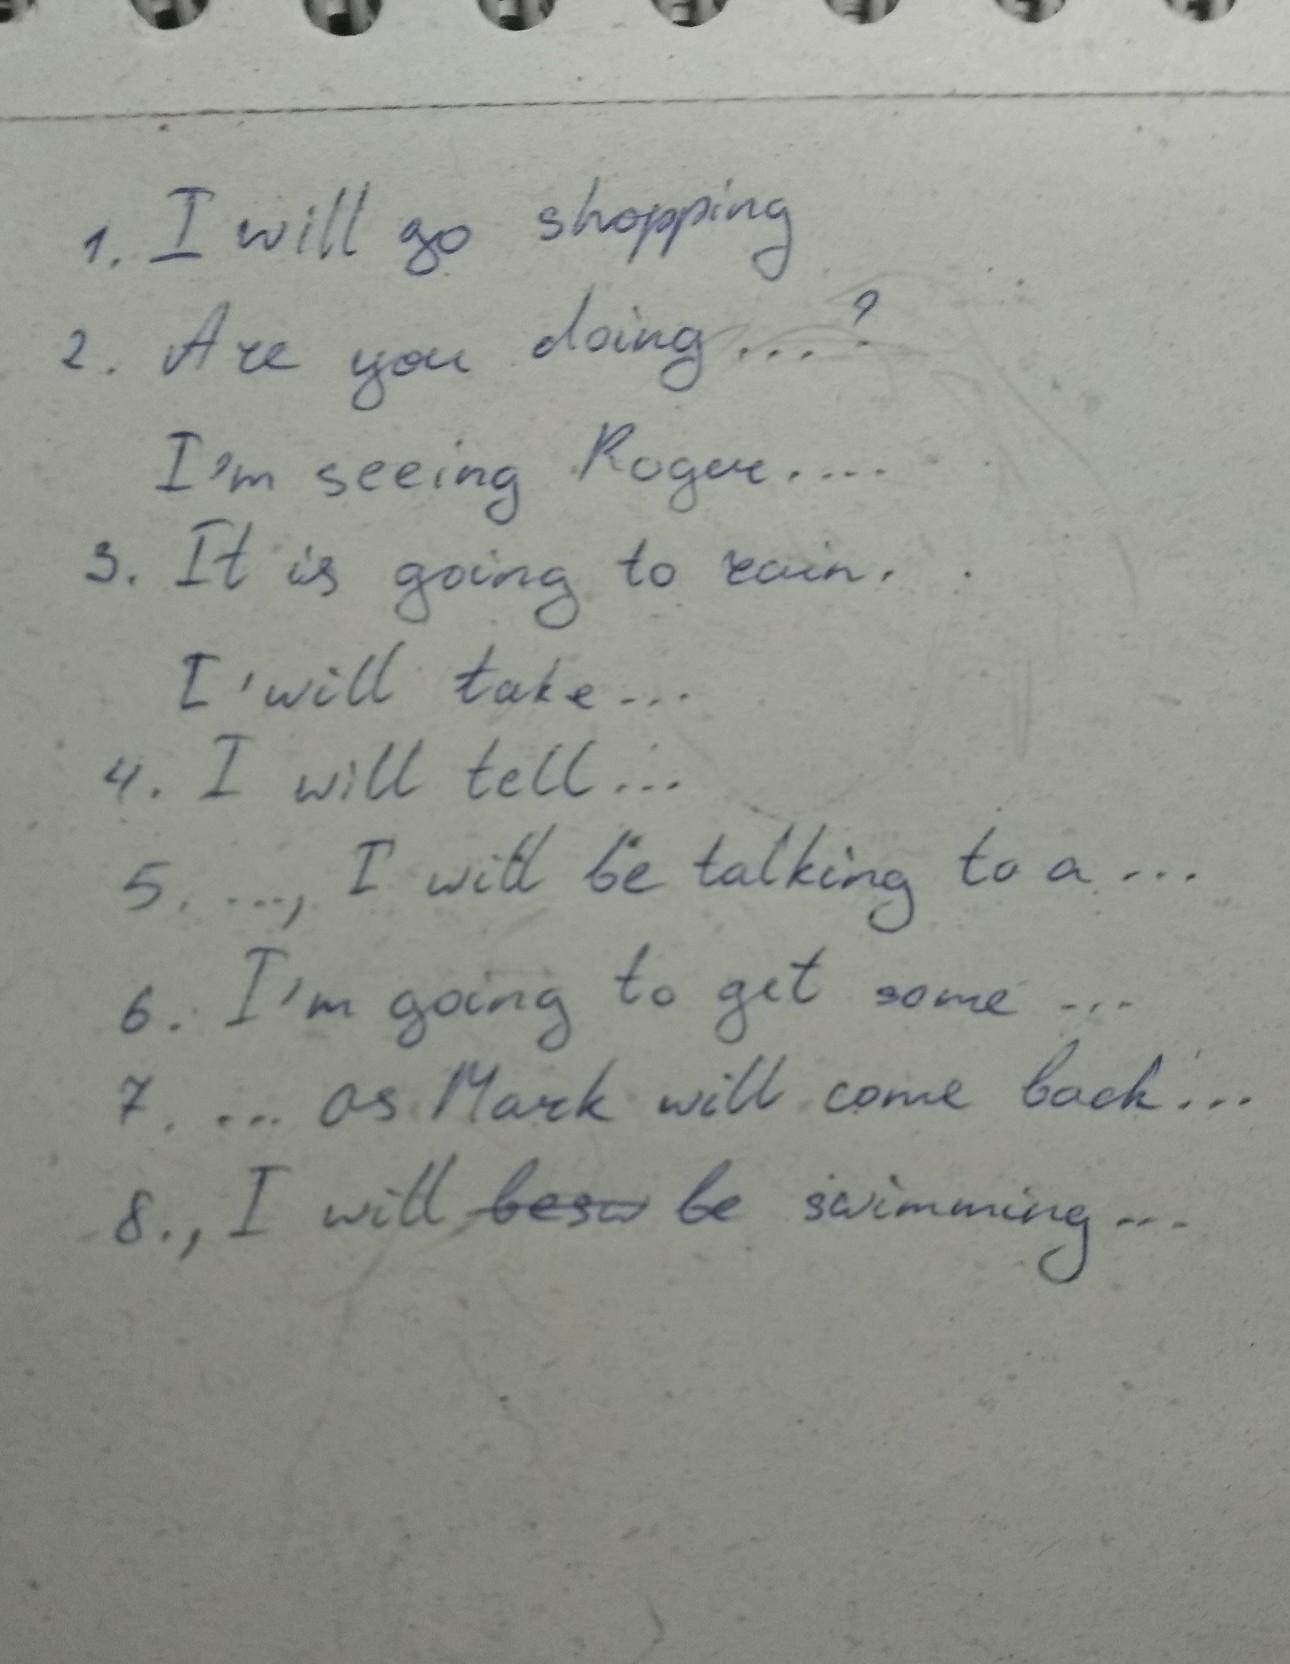 1. I will go shopping
2. Are you doing....?
I'm seeing Roger....
3. It is going to rain.
I'will take...
4. I will tell...
5. ..., I will be talking to a...
6. I'm going to get some ...
7. ... as Mark will come back...
8., I will be swimming...